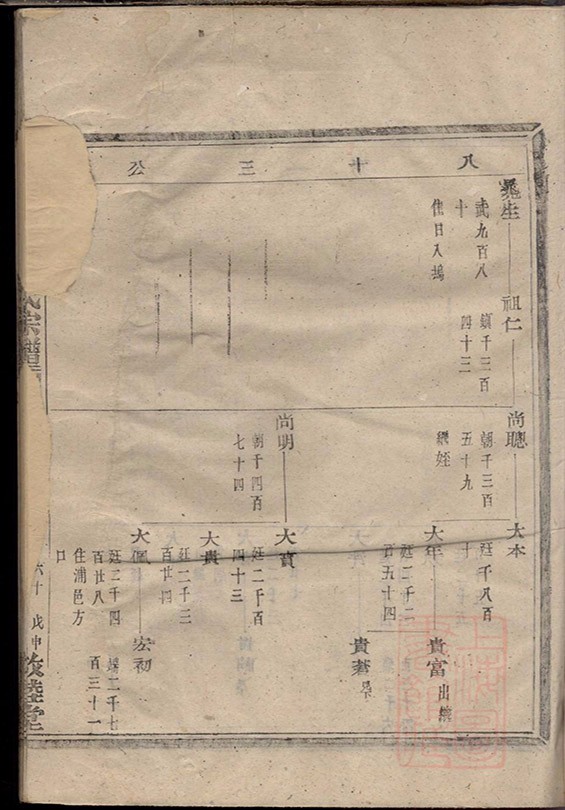 八十三公
堯生
武九百八
十
住日入塢
祖仁
鎮千三百
四十三
尚聰
朝千三百
五十九
繼姪
大本
廷千八百
十
大年
廷二千二
百五十四
貴富
出繼
貴
尚明
朝千四百
七十四
大寶
廷二千百
四十三
大貴
廷二千三
百廿四
大佩
廷二千四
百廿八
住浦邑方
口
宏初
二千七
百三十一
氏宗譜
六十
戊申
敦睦堂